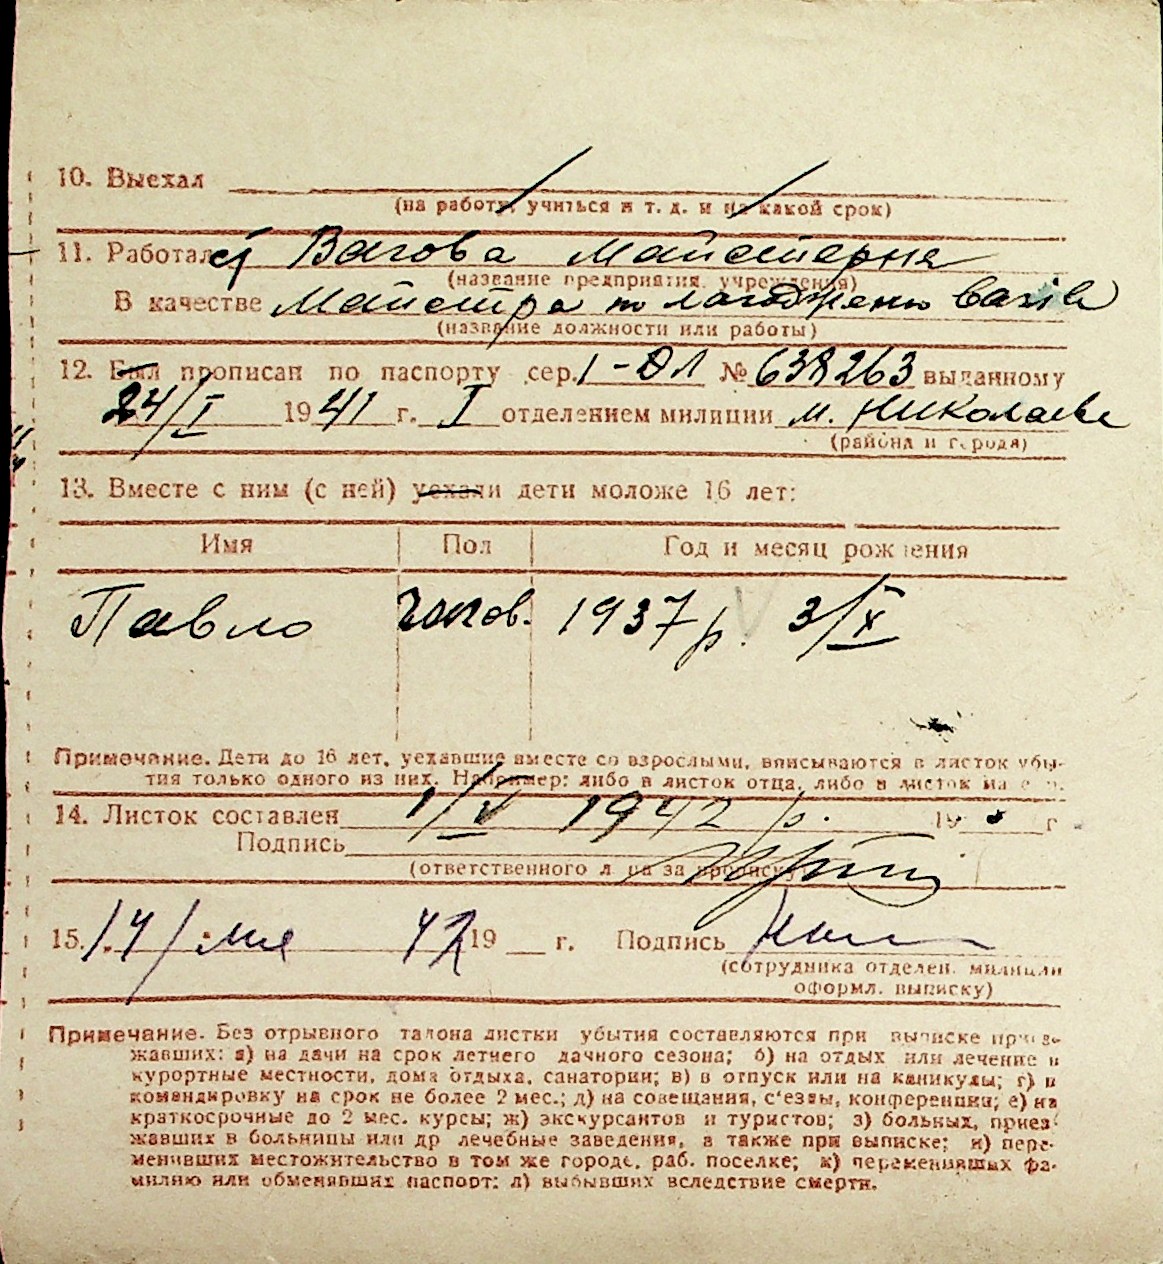 10. Выехал
(на работу, учиться и т. д. и на какой срок)
11. Работал Вагова Майстерня
(название предприятия, учреждения)
В качестве Майстра по лагодженю вагів
(название должности или работы)
12. Был прописан по паспорту сер. І-ДЛ № 638263 выданному
24/I 1941 г. I отделением милиции м. Николаеве
(района и города)
13. Вместе с ним (с ней) уехали дети моложе 16 лет:
Имя Пол Год и месяц рождения
Павло чолов. 1937 р. 3/X
Примечание. Дети до 16 лет, уехавшие вместе со взрослыми, вписываются в листок убы-
тия только одного из них. Например: либо в листок отца, либо в листок ма
14. Листок составлен 1/V 1942 р. 19 г
Подпись
(ответственного лица за прописку)
15. 14/ мая 42 19 г. Подпись
(сотрудника отделен. милиции
оформл. выписку)
Примечание. Без отрывного талона листки убытия составляются при выписке приез-
жавших: а) на дачи на срок летнего дачного сезона; б) на отдых или лечение в
курортные местности, дома отдыха, санатории; в) в отпуск или на каникулы; г) в
командировку на срок не более 2 мес.; д) на совещания, с'езды, конференции; е) на
краткосрочные до 2 мес. курсы; ж) экскурсантов и туристов; з) больных, приез-
жавших в больницы или др лечебные заведения, а также при выписке; и) пере-
менивших местожительство в том же городе, раб. поселке; к) переменивших фа-
милию или обменявших паспорт; л) выбывших вследствие смерти.